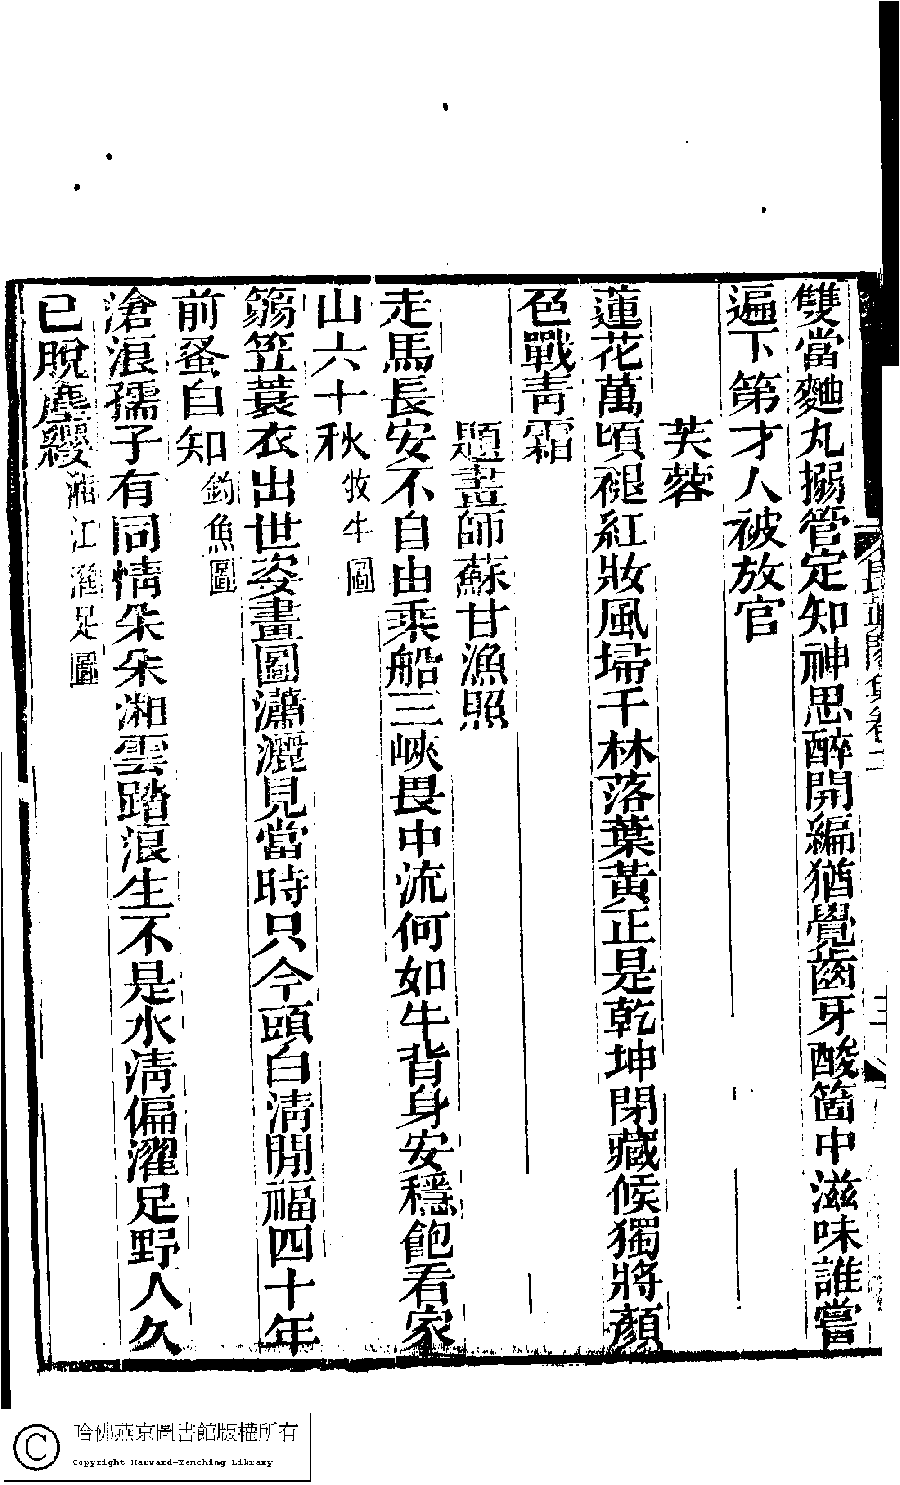 雙當麯丸搦管定知神思醉開編猶覺齒牙酸箇中滋味誰嘗
遍下第才人被放官
芙蓉
蓮花萬頃褪紅妝風埽千林落葉黃正是乾坤閉藏候獨將顏
色戰青霜
題畫師蘇甘漁照
走馬長安不自由乘船三峽畏中流何如牛背身安穩飽看家
山六十秋牧牛圖
篛笠蓑衣出世姿畫圖瀟灑見當時只今頭白清閒福四十年
前蚤自知釣魚圖
滄浪孺子有同情朵朵湘雲踏浪生不是水清偏濯足野人久
已脫塵纓湘江濯足圖
哈佛燕京圖書館版權所有
Copyright Harvard-Yenching Library